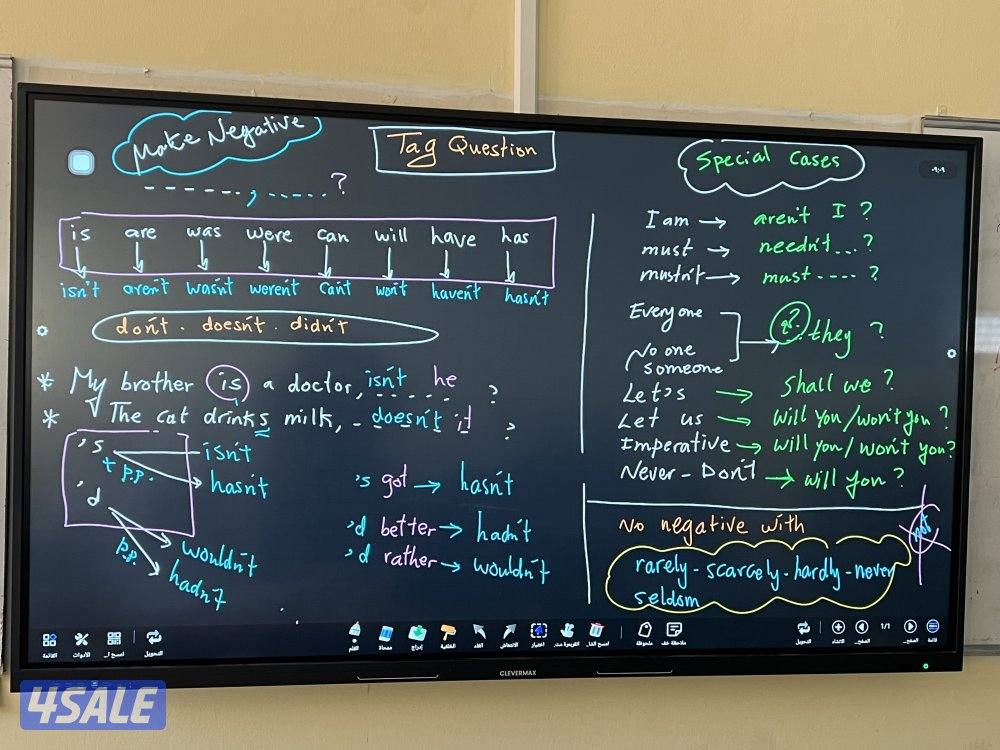 Make Negative
Tag Question
- - - - - - , - - - - - ?
is are was were can will have has
isn't aren't wasn't weren't can't won't haven't hasn't
don't . doesn't . didn't
* My brother is a doctor, isn't he ?
* The cat drinks milk, - doesn't it ?
's + p.p.
isn't
hasn't
'd
p.p.
wouldn't
hadn't
's got → hasn't
'd better → hadn't
'd rather → wouldn't
Special Cases
I am → aren't I ?
must → needn't...?
mustn't → must ---- ?
Every one
No one
someone
they ?
Let's → shall we ?
Let us → will you/won't you ?
Imperative → will you/won't you?
Never - Don't → will you ?
No negative with
not
rarely - scarcely - hardly - never
seldom
1/1
القائمة
الأدوات
التحويل
القلم
ممحاة
إدراج
الخلفية
إلغاء
اختيار
ملحوظة
التحويل
CLEVERMAX
4SALE